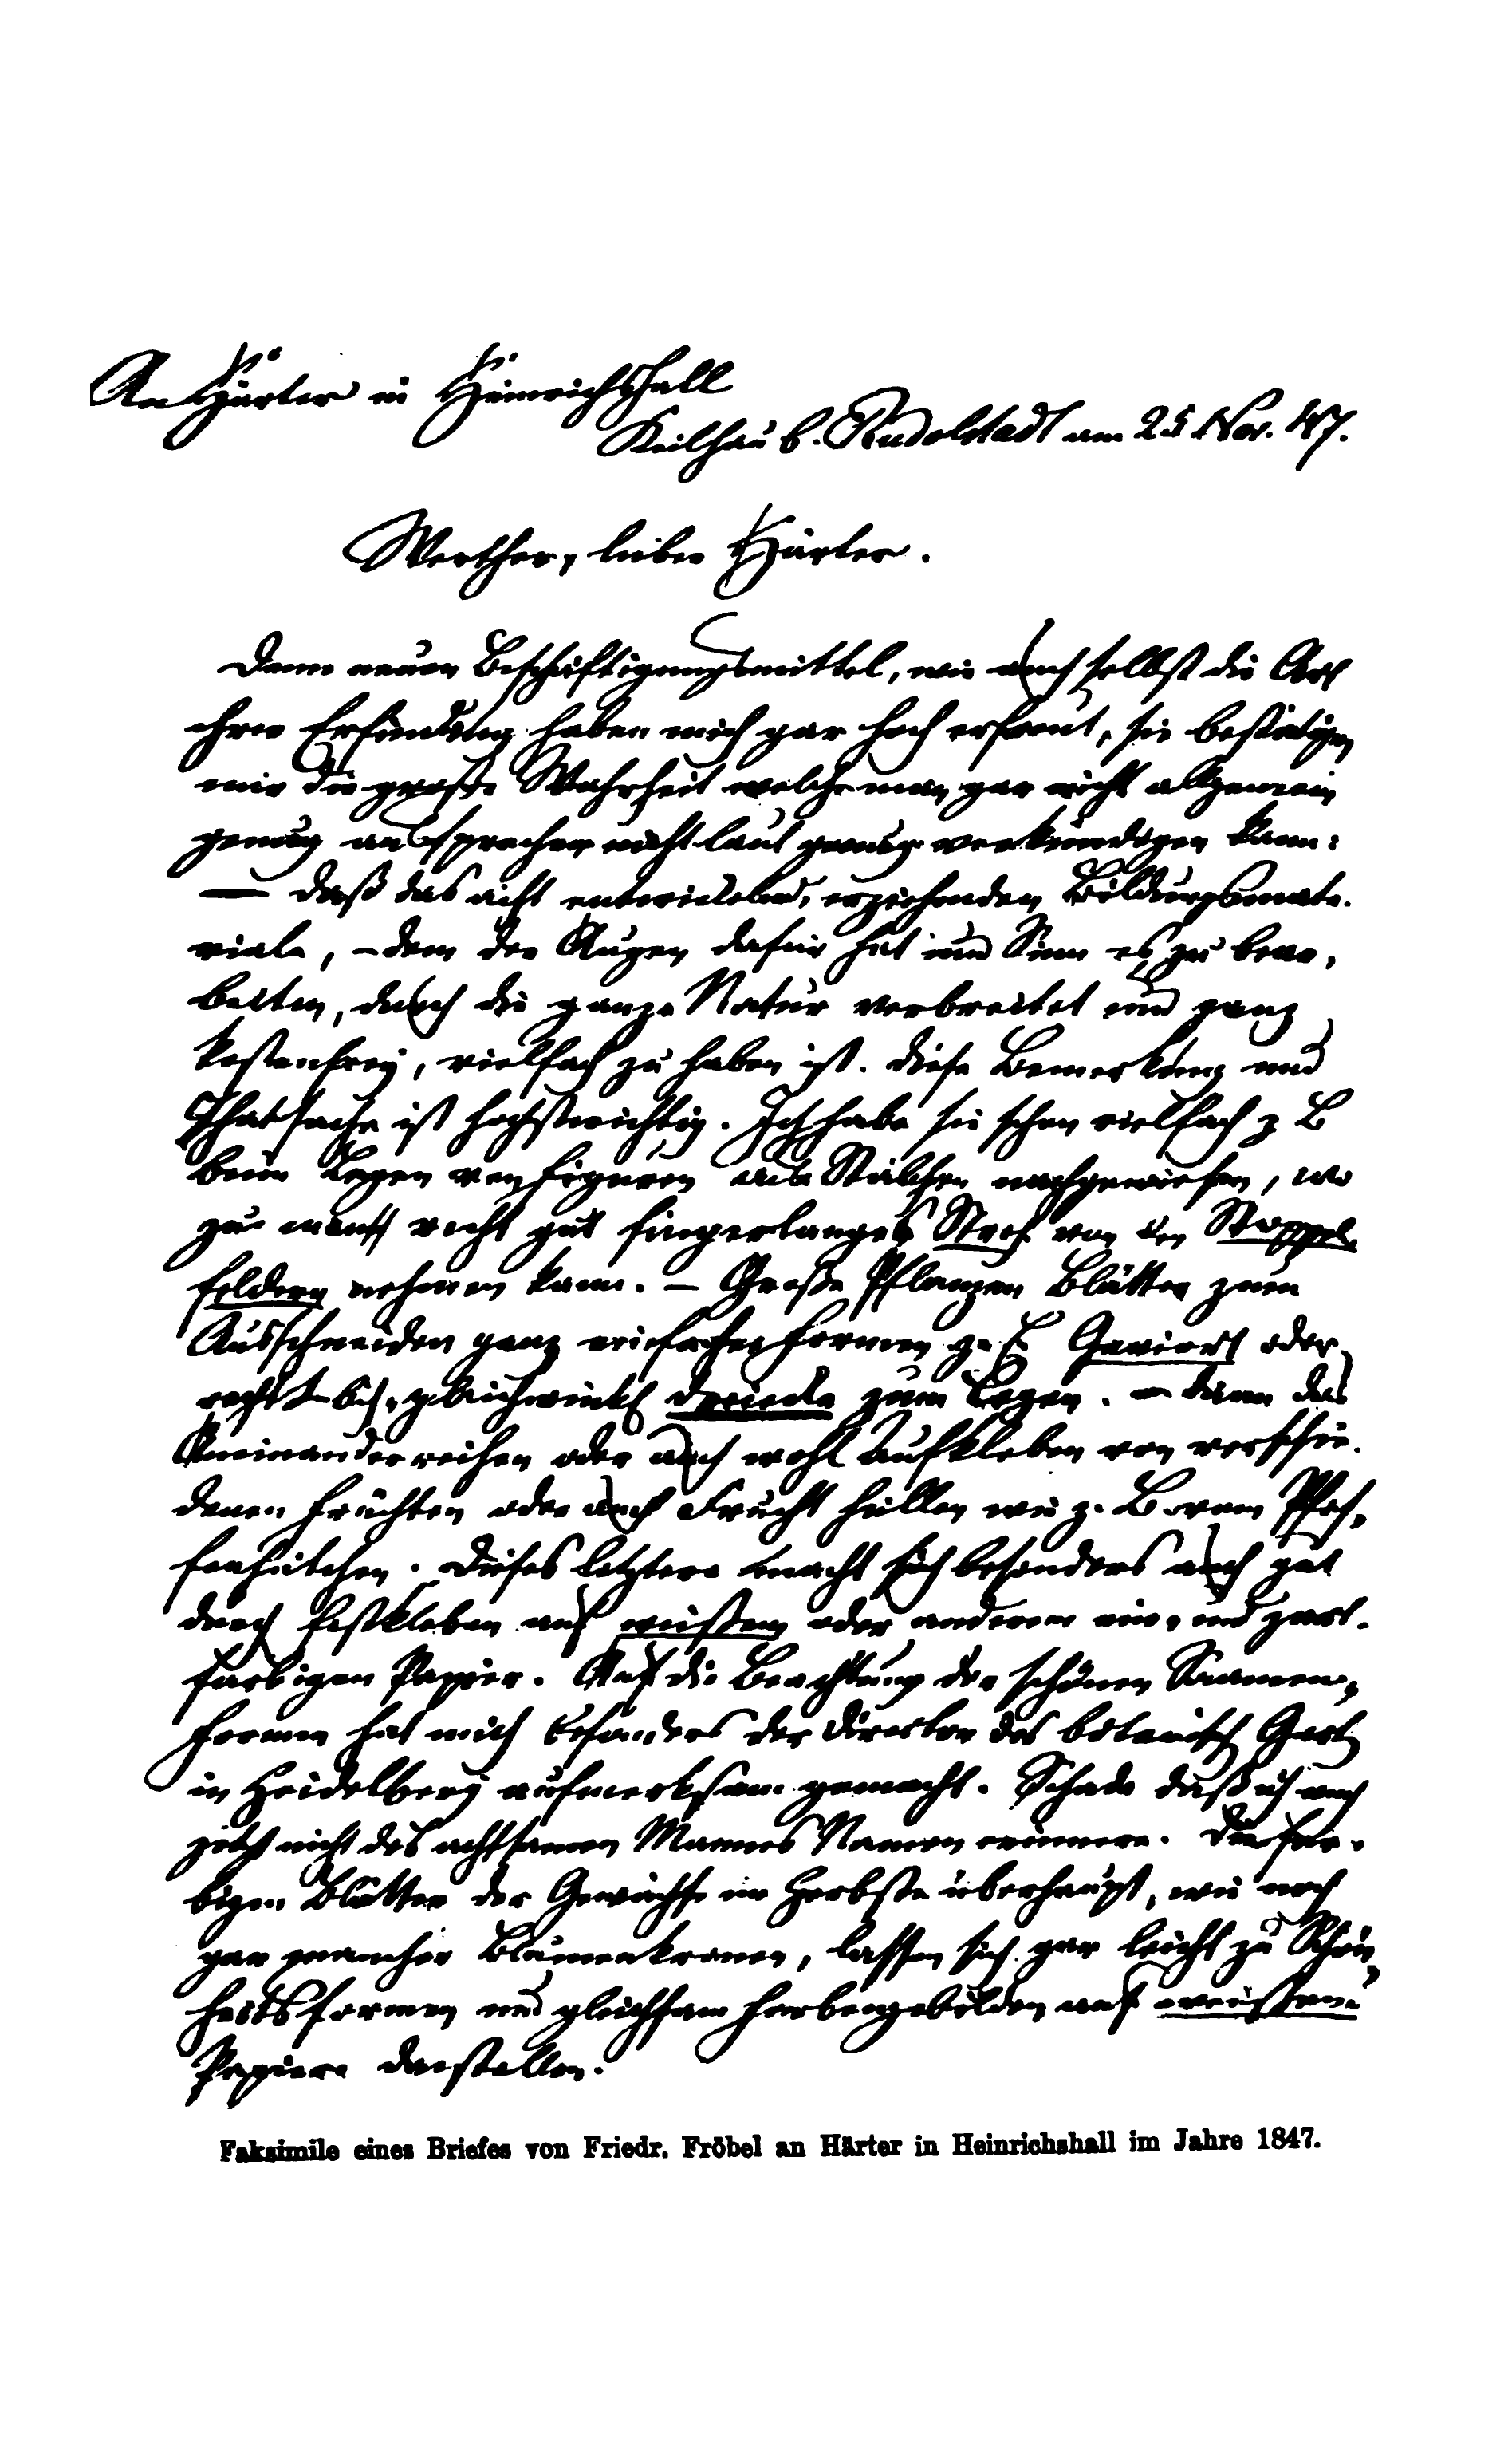 An Härter in Heinrichshall
Keilhau b. Rudolstadt am 25 Nov. 47.
Werther, lieber Härter.
Deine neuen Beschäftigungsmittel, wie auch selbst die Art
ihrer Erfindung haben mich gar hoch erfreut, sie bestätigen
mir die große Wahrheit welche man gar nicht allgemein
genug aussprechen nicht laut genug verkündigen kann:
— daß das ächt entwickelnd, erziehenden Bildungsmate-
riale, – dem der Augen dafür hat und Sinn es zu bear-
beiten, durch die ganze Natur verbreitet und ganz
kostenfrey, vielfach zu haben ist. Diese Bemerkung und
Thatsache ist höchstwichtig. Ich habe sie schon vielfach z B
beim Legen von Figuren aus Stäbchen nachgewiesen, wo
zu man recht gut fingerlanges Stroh von den Stoppel-
feldern nehmen kann. – Große Pflanzen Blätter zum
Ausschneiden ganz einfacher Formen z. B. Geviert oder
gleichwinkl Dreiecke zum Legen. – dann das
Aneinanderreihen oder auch wohl Aufkleben von verschie-
denen Früchten oder auch Frucht hüllen wie z. B. vom Pfaf-
fenhütchen. Dieses letztere macht sich besonders auch gut
durch Festkleben auf weißem oder anderem ein- und zart-
farbigen Papier. Auf die Beachtung der schönen Saamen-
formen hat mich besonders der Director des botanisch Gart
in Heidelberg aufmerksam gemacht. Schade daß ich mich
jetzt nicht des achtsamen Mannes Namen erinnere. Die far-
bigen Blätter der Gewächse im Herbste überhaupt, wie noch
gar mancher Blumenkronen, lassen sich gar leicht zu Schön-
heitsformen und gleichsam Farbengebilden auf weißem
Papiere darstellen.
Faksimile eines Briefes von Friedr. Fröbel an Härter in Heinrichshall im Jahre 1847.